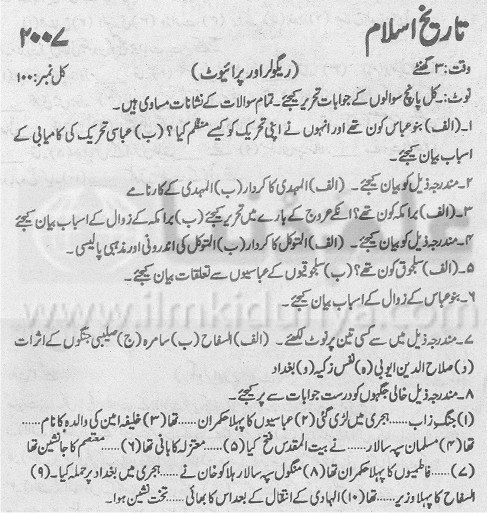 تاریخ اسلام ۲۰۰۷
وقت: ۳ گھنٹے (ریگولر اور پرائیوٹ) کل نمبر: ۱۰۰
نوٹ:۔ کل پانچ سوالوں کے جوابات تحریر کیجئے۔ تمام سوالات کے نشانات مساوی ہیں۔
۱۔ (الف) بنو عباس کون تھے اور انہوں نے اپنی تحریک کو کیسے منظم کیا؟ (ب) عباسی تحریک کی کامیابی کے
اسباب بیان کیجئے۔
۲۔ مندرجہ ذیل کو بیان کیجئے۔ (الف) المہدی کا کردار (ب) المہدی کے کارنامے
۳۔ (الف) برامکہ کون تھے؟ انکے عروج کے بارے میں تحریر کیجئے (ب) برامکہ کے زوال کے اسباب بیان کیجئے
۴۔ مندرجہ ذیل کو بیان کیجئے۔ (الف) التوکل کا کردار (ب) التوکل کی اندرونی اور مذہبی پالیسی۔
۵۔ (الف) سلجوق کون تھے؟ (ب) سلجوقیوں کے عباسیوں سے تعلقات بیان کیجئے۔
۶۔ بنو عباس کے زوال کے اسباب بیان کیجئے۔
www.ilmkidunya.com
۷۔ مندرجہ ذیل میں سے کسی تین پر نوٹ لکھئے۔ (الف) السفاح (ب) سامرہ (ج) صلیبی جنگوں کے اثرات
(د) صلاح الدین ایوبی (ہ) نفس زکیہ (و) بغداد
۸۔ مندرجہ ذیل خالی جگہوں کو درست جوابات سے پر کیجئے۔
(۱) جنگ زاب ...... ہجری میں لڑی گئی (۲) عباسیوں کا پہلا حکمران ...... تھا (۳) خلیفہ امین کی والدہ کا نام ......
تھا (۴) مسلمان سپہ سالار ...... نے بیت المقدس فتح کیا (۵) ...... معتزلہ کا بانی تھا (۶) ...... معتصم کا جانشین تھا
(۷) ...... فاطمیوں کا پہلا حکمران تھا (۸) منگول سپہ سالار ہلاکو خان نے ...... ہجری میں بغداد پر حملہ کیا۔ (۹)
السفاح کا پہلا وزیر ...... تھا (۱۰) الہادی کے انتقال کے بعد اس کا بھائی ...... تخت نشین ہوا۔